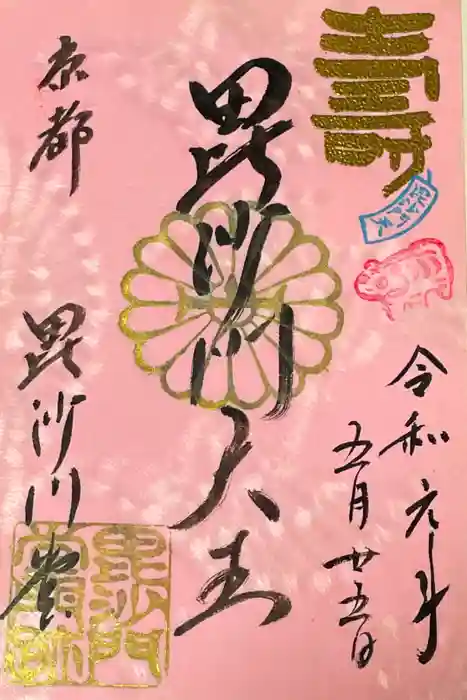 壽
令和元年
五月廿五日
毘沙門天王
京都
毘沙門堂
毘沙門
堂印